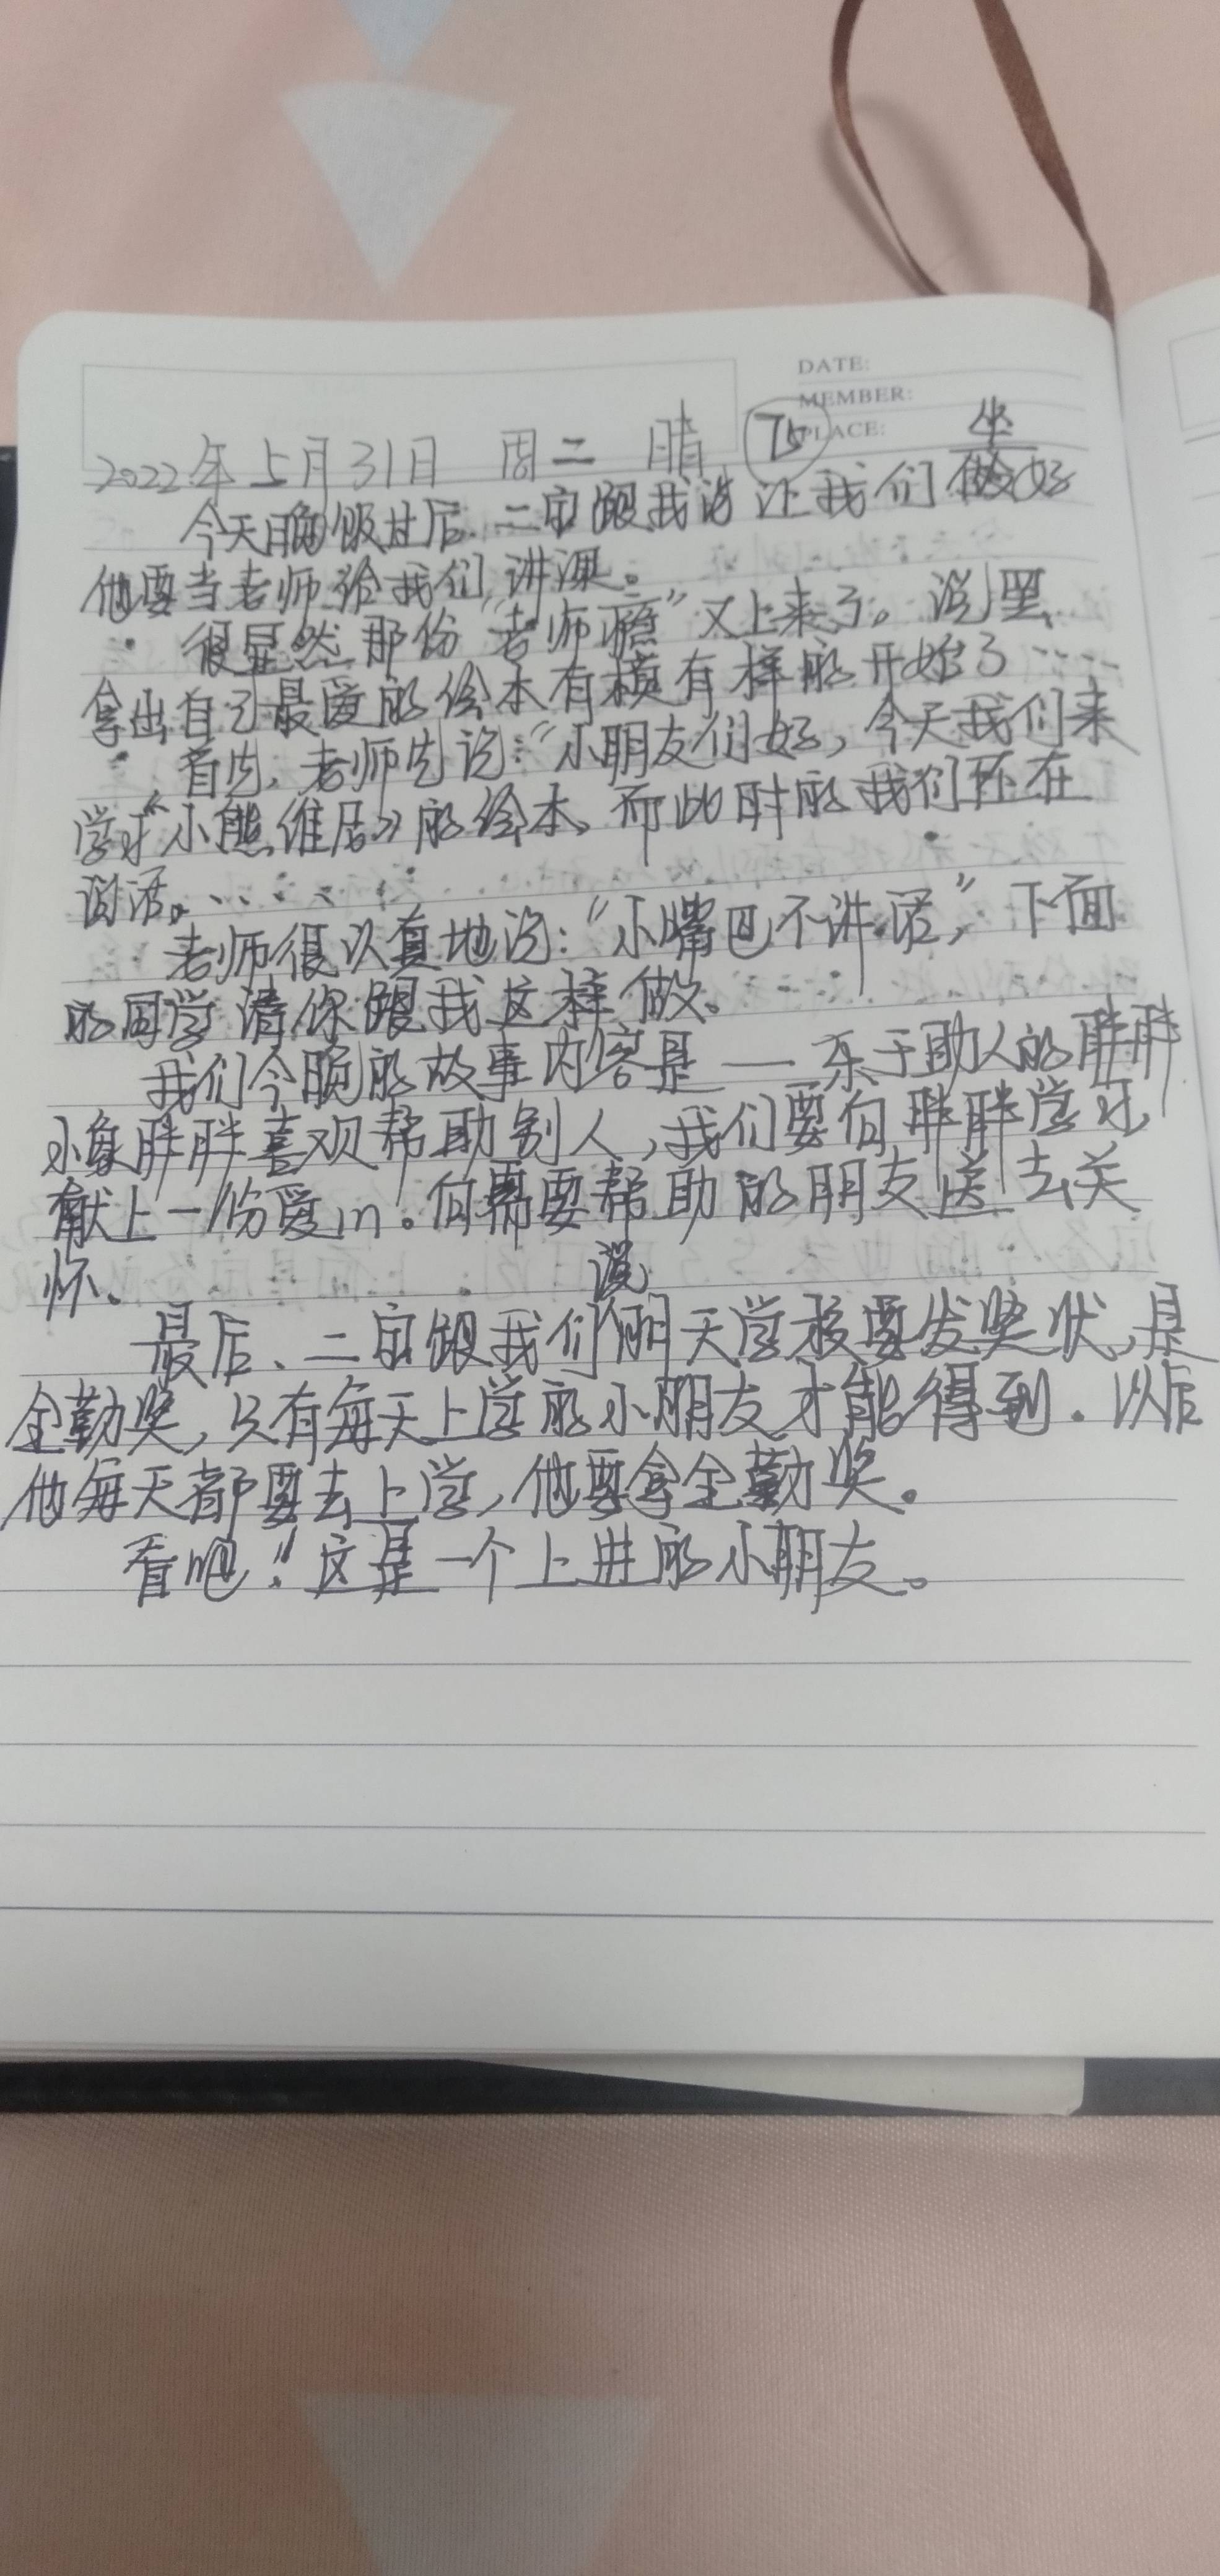 DATE:
MEMBER:
PLACE:
2022年5月31日 周二 晴 75
坐
今天晚饭过后、二宝跟我说让我们做好
他要当老师给我们讲课。
很显然那份“老师瘾”又上来了。说罢、
拿出自己最爱的绘本有模有样的开始了……
首先,老师先说:“小朋友们好,今天我们来
学习“小熊维尼》的绘本、而此时的我们还在
说话。……
老师很认真地说:“小嘴巴不讲话,”下面
的同学请你跟我这样做。
我们今晚的故事内容是——乐于助人的胖胖
小象胖胖喜欢帮助别人,我们要向胖胖学习,
献上一份爱心。向需要帮助的朋友送去关
怀、
说
最后、二宝跟我们明天学校要发奖状,是
全勤奖,只有每天上学的小朋友才能得到.以后
他每天都要去上学,他要拿全勤奖。
看吧!这是一个上进的小朋友。